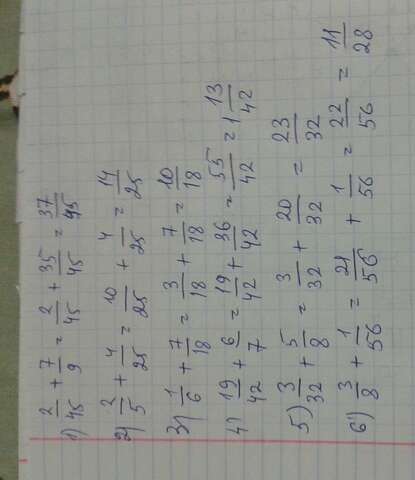 1) 2/45 + 7/9 = 2/45 + 35/45 = 37/45
2) 2/5 + 4/25 = 10/25 + 4/25 = 14/25
3) 1/6 + 7/18 = 3/18 + 7/18 = 10/18
4) 19/42 + 6/7 = 19/42 + 36/42 = 55/42 = 1 13/42
5) 3/32 + 5/8 = 3/32 + 20/32 = 23/32
6) 3/8 + 1/56 = 21/56 + 1/56 = 22/56 = 11/28